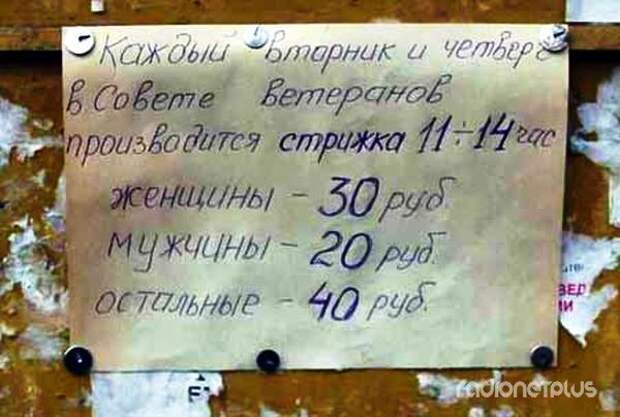 Каждый вторник и четверг
в Совете ветеранов
производится стрижка 11÷14 час
женщины – 30 руб.
мужчины – 20 руб.
остальные – 40 руб.
radionetplus